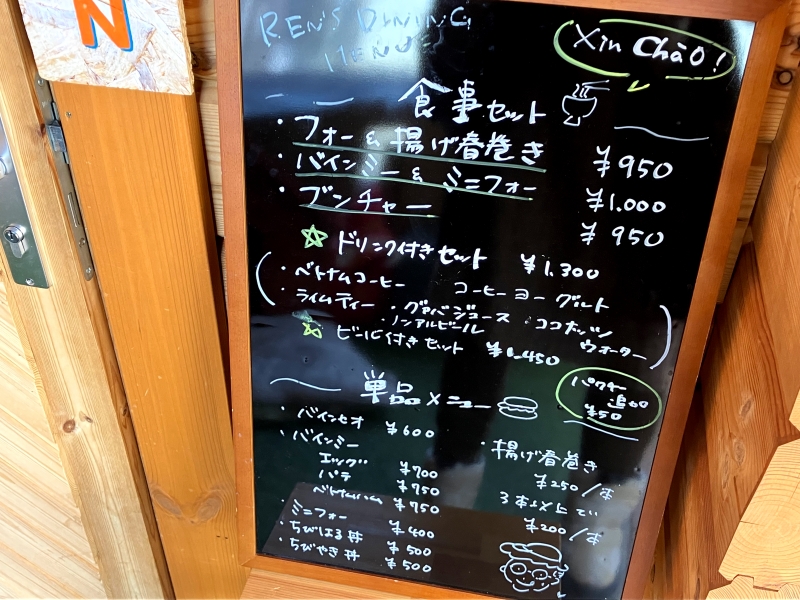 N
REN'S DINING
MENUE
Xin Chào!
食事セット
・フォー & 揚げ春巻き ¥950
・バインミー & ミニフォー ¥1.000
・ブンチャー ¥950
☆ ドリンク付きセット ¥1.300
・ベトナムコーヒー コーヒーヨーグルト
・ライムティー ・グァバジュース ・ココナッツウォーター
・ノンアルビール
☆ ビール付きセット ¥1.450
パクチー
追加
¥50
単品メニュー
・バインセオ ¥600
・バインミー
エッグ ¥700
パテ ¥750
ベトナムハム ¥750
・ミニフォー ¥400
・ちびはる丼 ¥500
・ちびやき丼 ¥500
・揚げ春巻き
¥250/本
3本以上で
¥200/本